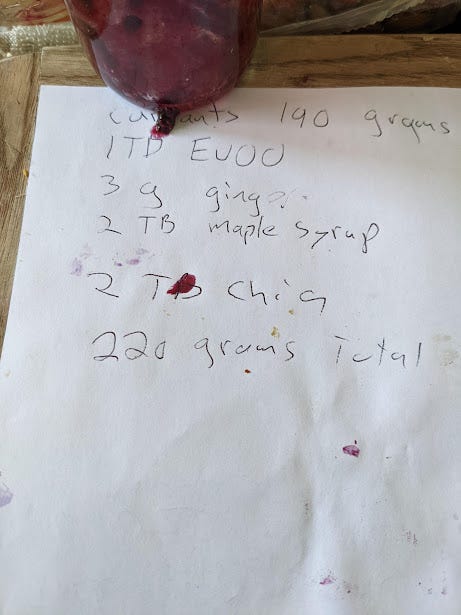 currants 190 grams
1TB EVOO
3 g ginger
2 TB maple syrup
2 TB chia
220 grams Total